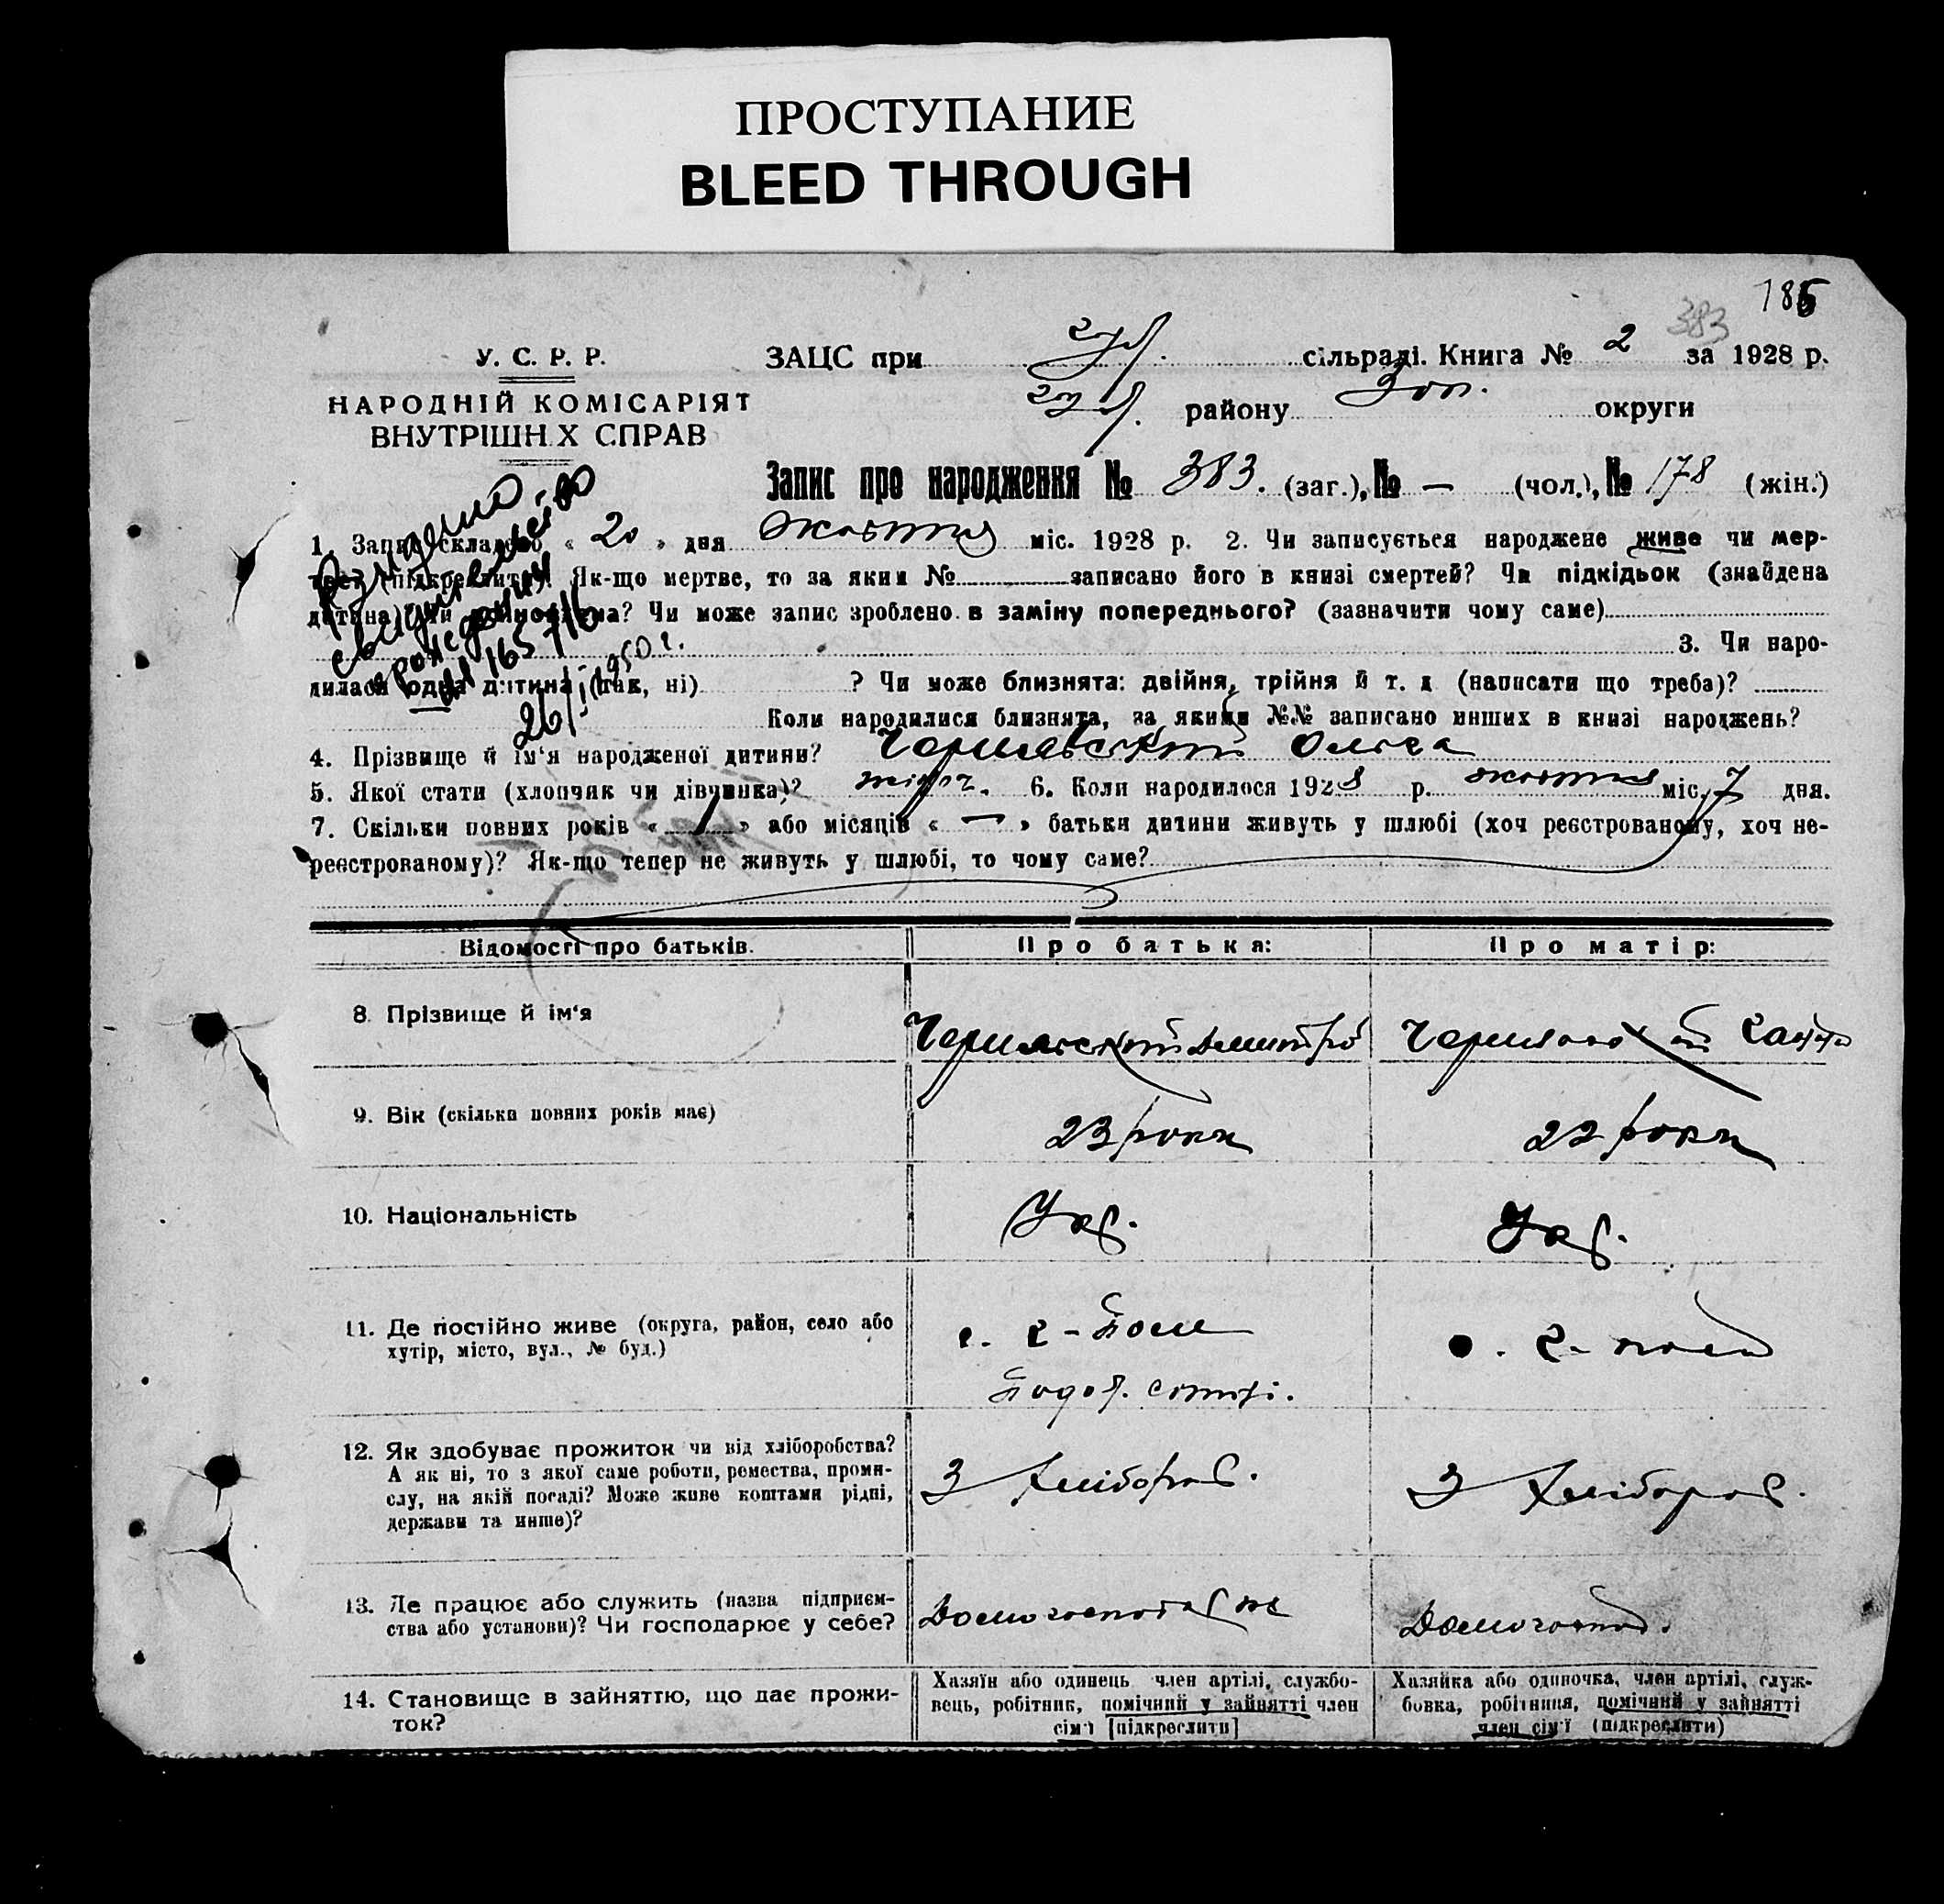 ПРОСТУПАНИЕ
BLEED THROUGH
185
383
У. С. Р. Р.
ЗАЦС при сільраді. Книга № 2 за 1928 р.
НАРОДНІЙ КОМІСАРІЯТ
ВНУТРІШН.Х СПРАВ
району Зап. округи
Запис про народження № 383. (заг.), № — (чол.), № 178 (жін.)
1. Запис складено « 20 » дня жовтня міс. 1928 р. 2. Чи записується народжене живе чи мер-
тве? (підкреслити) Як-що мертве, то за яким № записано його в книзі смертей? Чи підкідьок (знайдена
дитина)? Чи Чи може запис зроблено в заміну попереднього? (зазначити чому саме)
3. Чи наро-
дилася одна дитина (так, ні) ? Чи може близнята: двійня, трійня й т. д (написати що треба)?
Коли народилися близнята, за якими №№ записано инших в книзі народжень?
Выдано
свидетельство
о рождении
165716
26/ 1950 г.
4. Прізвище й ім'я народженої дитини? Чернявський Ольга
5. Якої стати (хлопчик чи дівчинка)? жіноч. 6. Коли народилося 1928 р. жовтня міс. 7 дня.
7. Скільки повних років « 1 » або місяців « — » батьки дитини живуть у шлюбі (хоч реєстрованому, хоч не-
реєстрованому)? Як-що тепер не живуть у шлюбі, то чому саме?
Відомості про батьків. Про батька: Про матір:
8. Прізвище й ім'я Чернявський Дмитро Чернявський Ганна
9. Вік (скільки повних років має) 23 роки 22 роки
10. Національність Укр. Укр.
11. Де постійно живе (округа, район, село або
хутір, місто, вул., № буд.)
с. Г-Поле
. Г-поле
12. Як здобуває прожиток чи від хліборобства?
А як ні, то з якої саме роботи, ремества, проми-
слу, на якій посаді? Може живе коштами рідні,
держави та инше)?
З хлібороб.
З хлібороб.
13. Де працює або служить (назва підприєм-
ства або установи)? Чи господарює у себе?
Домогосподар
Домогоспод.
14. Становище в зайняттю, що дає прожи-
ток?
Хазяїн або одинець член артілі, службо-
вець, робітник, помічний у зайнятті член
сім'ї [підкреслити]
Хазяйка або одиночка, член артілі, служ-
бовка, робітниця, помічний у зайнятті
член сім'ї (підкреслити)